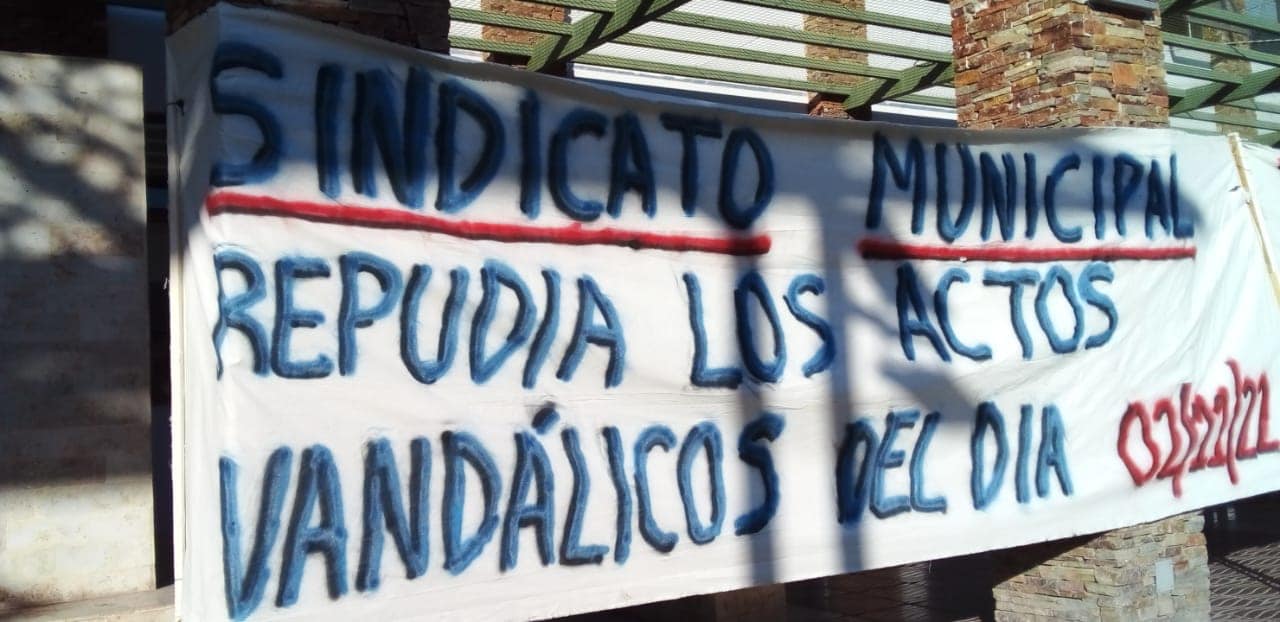 SINDICATO MUNICIPAL
REPUDIA LOS ACTOS
VANDÁLICOS DEL DIA